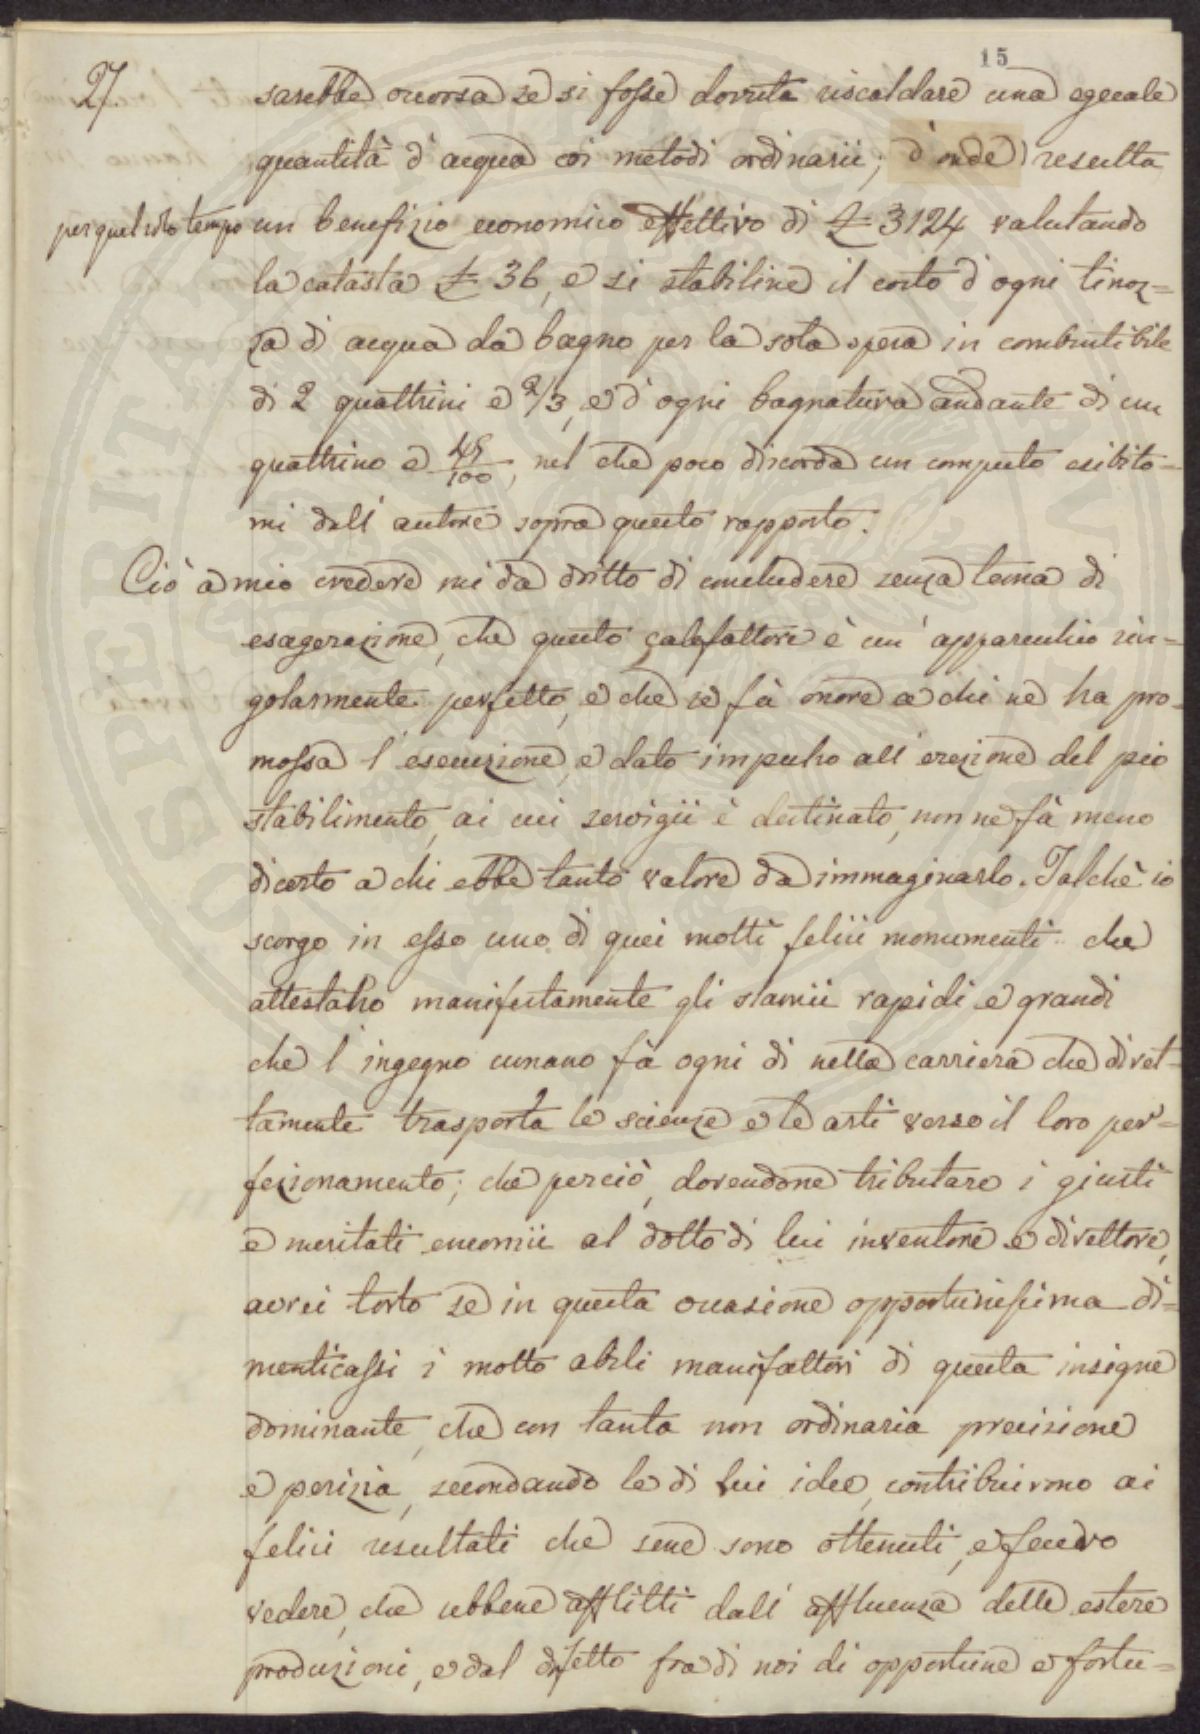 15
27
sarebbe occorsa se si fosse dovuta riscaldare una eguale
quantità d'acqua coi metodi ordinarii; d'onde resulta
per quel solo tempo un benefizio economico effettivo di £ 3124 valutando
la catasta £ 36, e si stabilisce il costo d'ogni tinoz=
za di acqua da bagno per la sola spesa in combustibile
di 2 quattrini e 2/3, e d'ogni bagnatura andante di un
quattrino e 45/100, nel che poco discorda un computo esibito=
mi dall'autore sopra questo rapporto.
Ciò a mio credere mi da dritto di concludere senza tema di
esagerazione, che questo calefattore è un'apparecchio sin=
golarmente perfetto, e che se fà onore a chi ne ha pro=
mossa l'esecuzione, e dato impulso all'erezione del pio
stabilimento, ai cui servigii è destinato, non ne fà meno
di certo a chi ebbe tanto valore da immaginarlo. Talchè io
scorgo in esso uno di quei molti felici monumenti che
attestano manifestamente gli slancii rapidi e grandi
che l'ingegno umano fà ogni dì nella carriera che diret=
tamente trasporta le scienze e le arti verso il loro per=
fezionamento; che perciò, dovendone tributare i giusti
e meritati encomii al dotto di lui inventore e direttore,
avrei torto se in questa occasione opportunissima di=
menticassi i molto abili manifattori di questa insigne
dominante, che con tanta non ordinaria precisione
e perizia, secondando le di lui idee, contribuirono ai
felici resultati che sene sono ottenuti, e fecero
vedere, che sebbene afflitti dall'affluenza delle estere
produzioni, e dal difetto fra di noi di opportune e fortu=